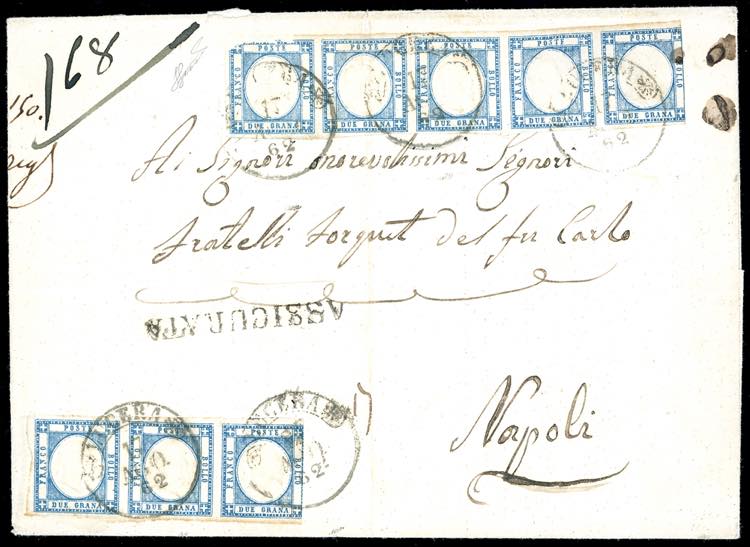 168
150.
POSTE POSTE POSTE POSTE POSTE
FRANCO BOLLO FRANCO BOLLO FRANCO BOLLO FRANCO BOLLO FRANCO BOLLO
DUE GRANA DUE GRANA DUE GRANA DUE GRANA DUE GRANA
17
62
62
Ai Signori onorevolissimi Signori
Fratelli Forquet del fu Carlo
ASSICURATA
17
Napoli
POSTE POSTE POSTE
FRANCO BOLLO FRANCO BOLLO FRANCO BOLLO
DUE GRANA DUE GRANA DUE GRANA
AGO
62
62